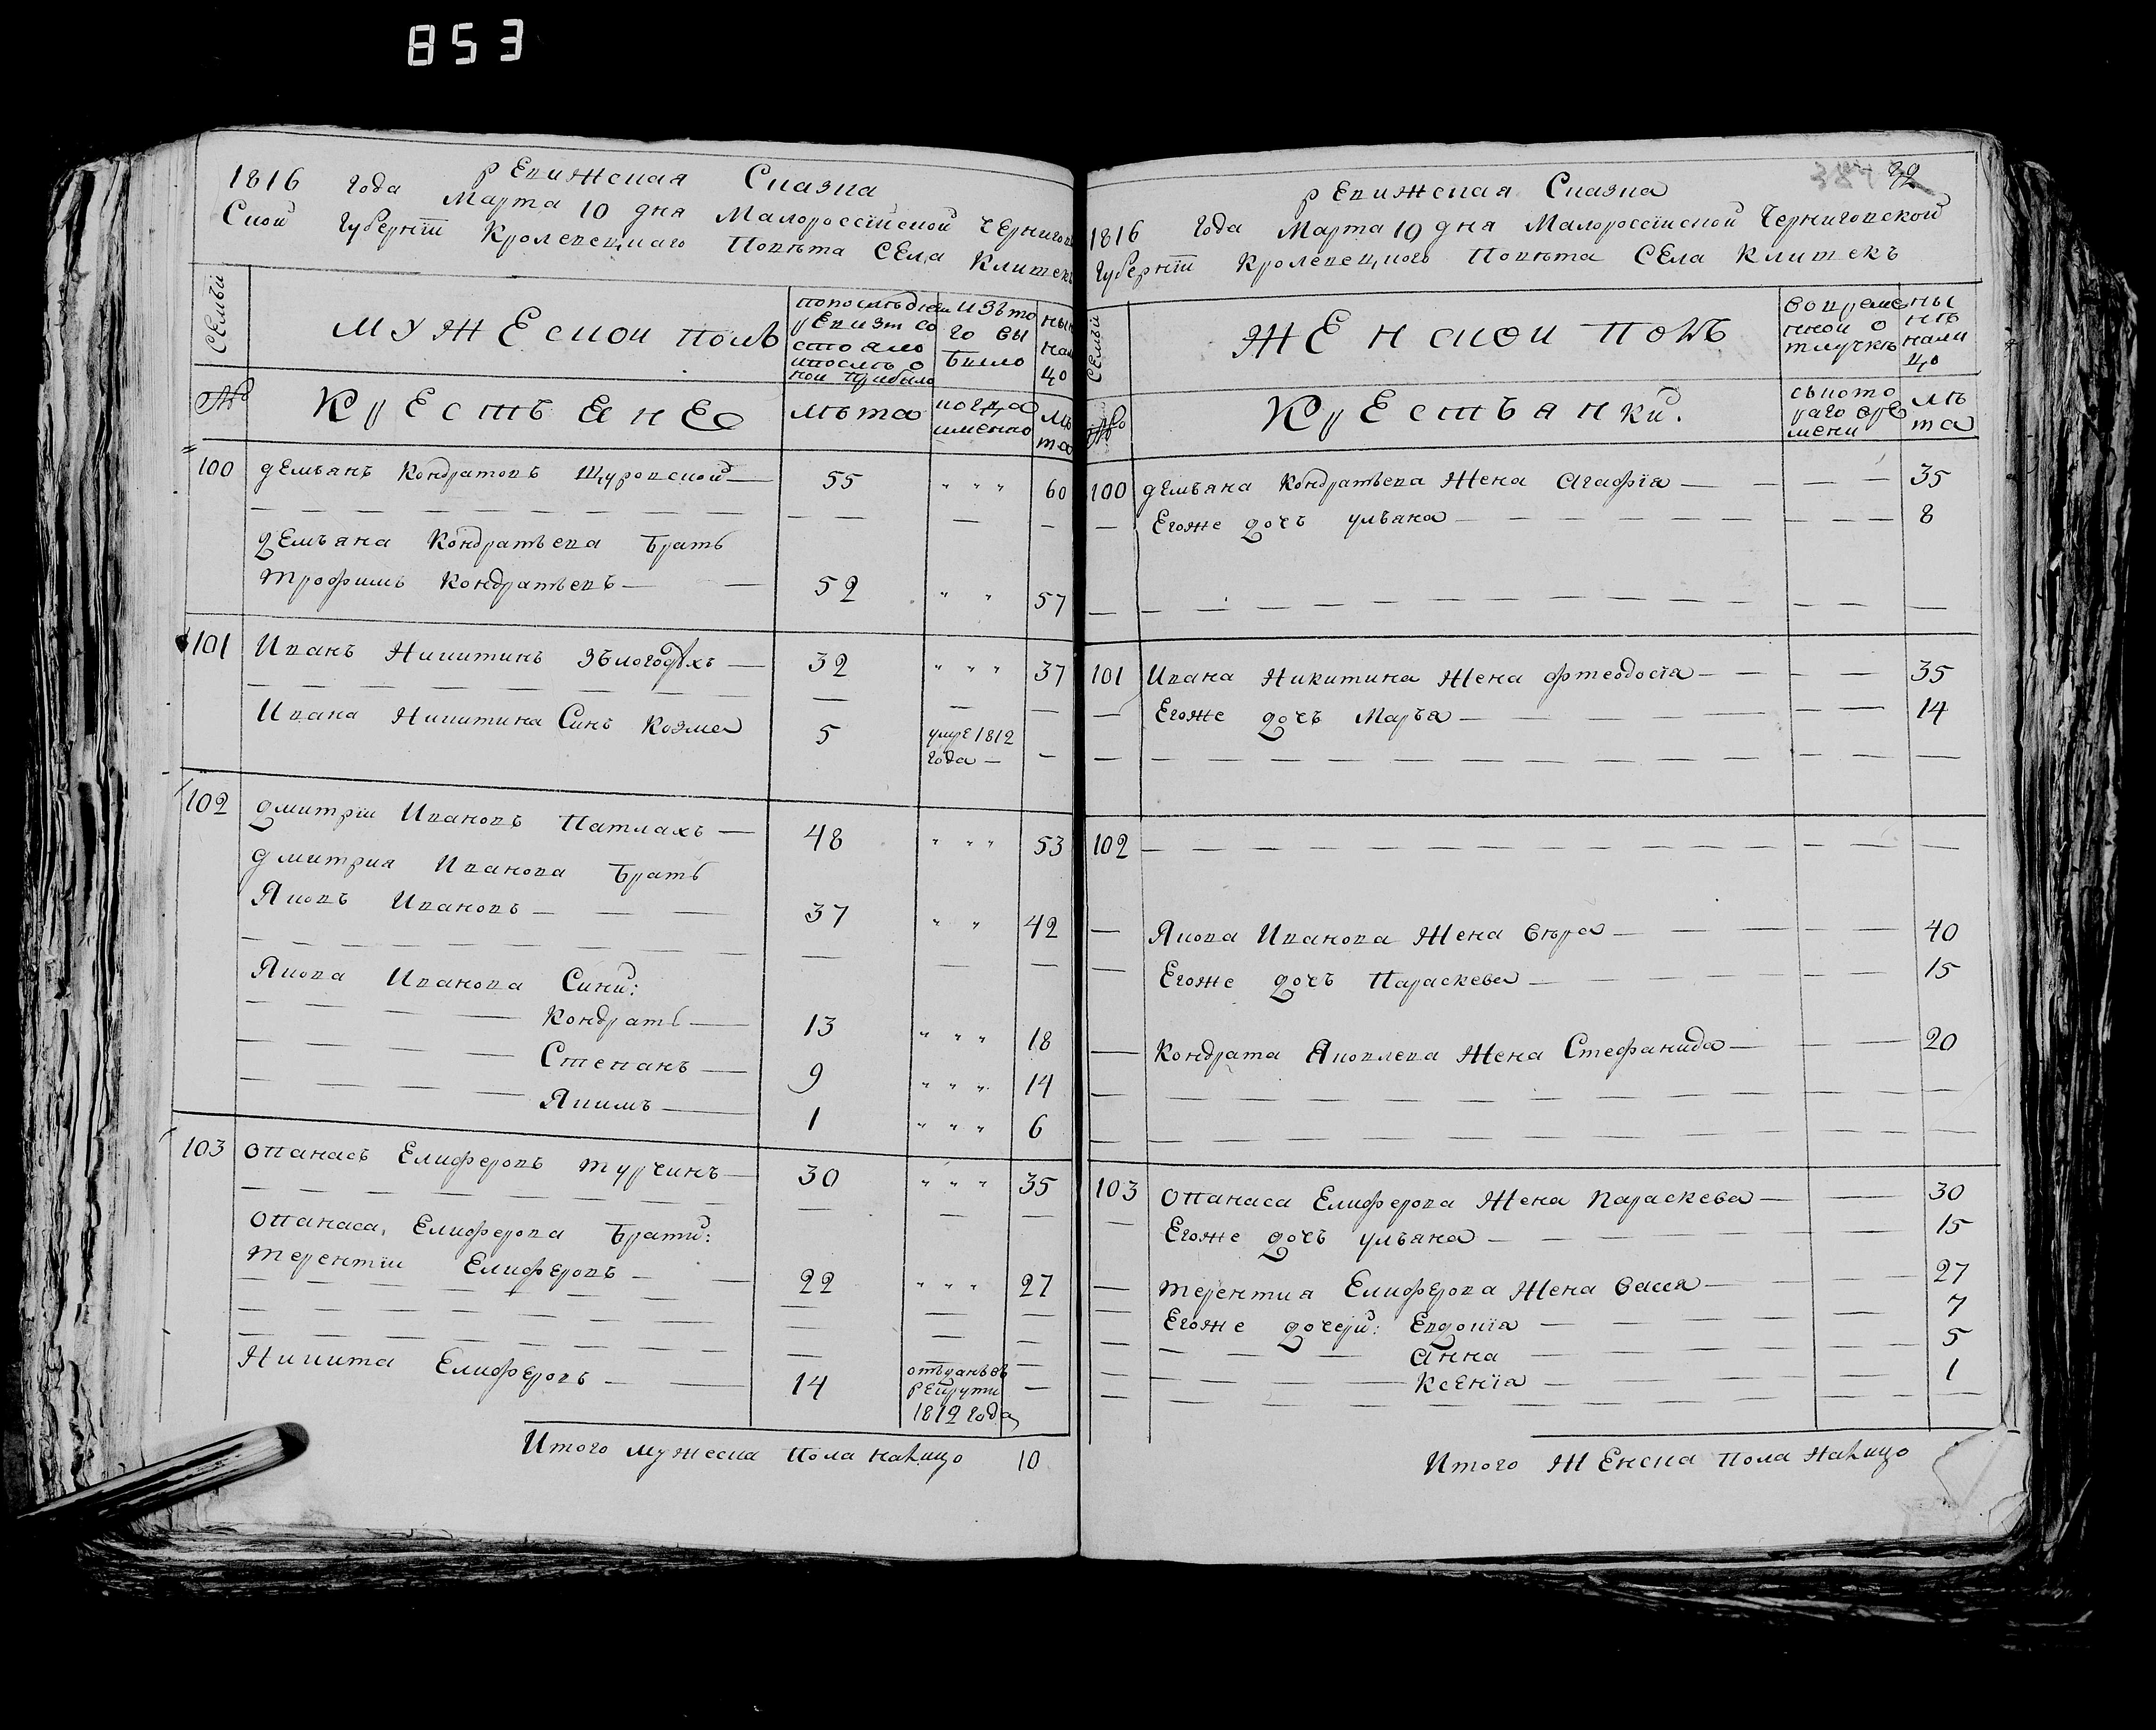 853
Ревижская Сказка
1816 года Марта 10 дня Малороссїйской Чернигов
Ской Губернїи Кролевецкаго Повѣта Села Клишекъ
Семьи
Мужеской полъ
по последней
ревизіи со
стояло
и после о
ной прибыло
изъ то
го вы
было
ны
на
цо
№
Крестьяне
лѣта
когда
именно
лѣ
та
100 Демьянъ Кондратовъ Щуровской — 55 " " " 60
Демьяна Кондратьева Братъ
Трофимъ Кондратьевъ — — 52 " " 57
101 Иванъ Никитинъ — 32 " " " 37
Ивана Никитина Синъ Козма 5 умре 1812
года — —
102 Дмитрїи Ивановъ Патлахъ — 48 " " " 53
Дмитрия Иванова Братъ
Яковъ Ивановъ — — — 37 " " 42
Якова Иванова Сини:
Кондратъ — 13 " " " 18
Степанъ — 9 " " " 14
Якимъ — 1 " " " 6
103 Опанасъ Елиферовъ Турчинъ — 30 " " " 35
Опанаса Елиферова Брати:
Терентїи Елиферовъ — — 22 " " " 27
Никита Елиферовъ — — 14 отъданъ въ
рекрути
1812 года —
Итого мужеска пола налицо 10
384 92
Ревижская Сказка
1816 Года Марта 10 дня Малороссїйской Черниговской
Губернїи Кролевецкого Повѣта Села Клишекъ
Семьи
Женской полъ
во време
нной о
тлучкѣ
ны
нѣ
нали
цо
№
Крестьянки.
съ кото
раго вре
мени
лѣ
та
100 Демьяна Кондратьева Жена Агафїя — — — — 35
— Егоже дочъ Ульяна — — — — 8
101 Ивана Никитина Жена Фтеодосїя — — — — 35
— Егоже дочъ Марья — — — — 14
102 — — — —
— Якова Иванова Жена Вѣра — — — — 40
— Егоже дочъ Параскева — — — — 15
— Кондрата Яковлева Жена Стефанида — — — 20
103 Опанаса Елиферова Жена Параскева — — 30
— Егоже дочъ Ульяна — — — — 15
— Терентия Елиферова Жена Васса — — — — 27
— Егоже дочери: Евдокїя — — — 7
Анна — — — 5
Ксенїя — — — 1
Итого Женска пола Налицо